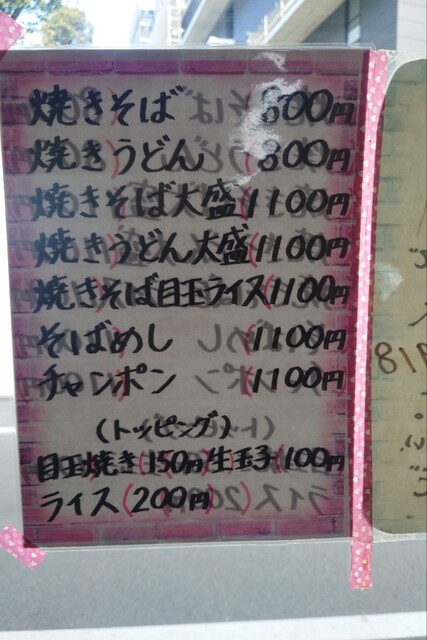 焼きそば 800円
焼きうどん 800円
焼きそば大盛 1100円
焼きうどん大盛 1100円
焼きそば目玉ライス 1100円
そばめし 1100円
チャンポン 1100円
(トッピング)
目玉焼き 150円 生玉子 100円
ライス 200円